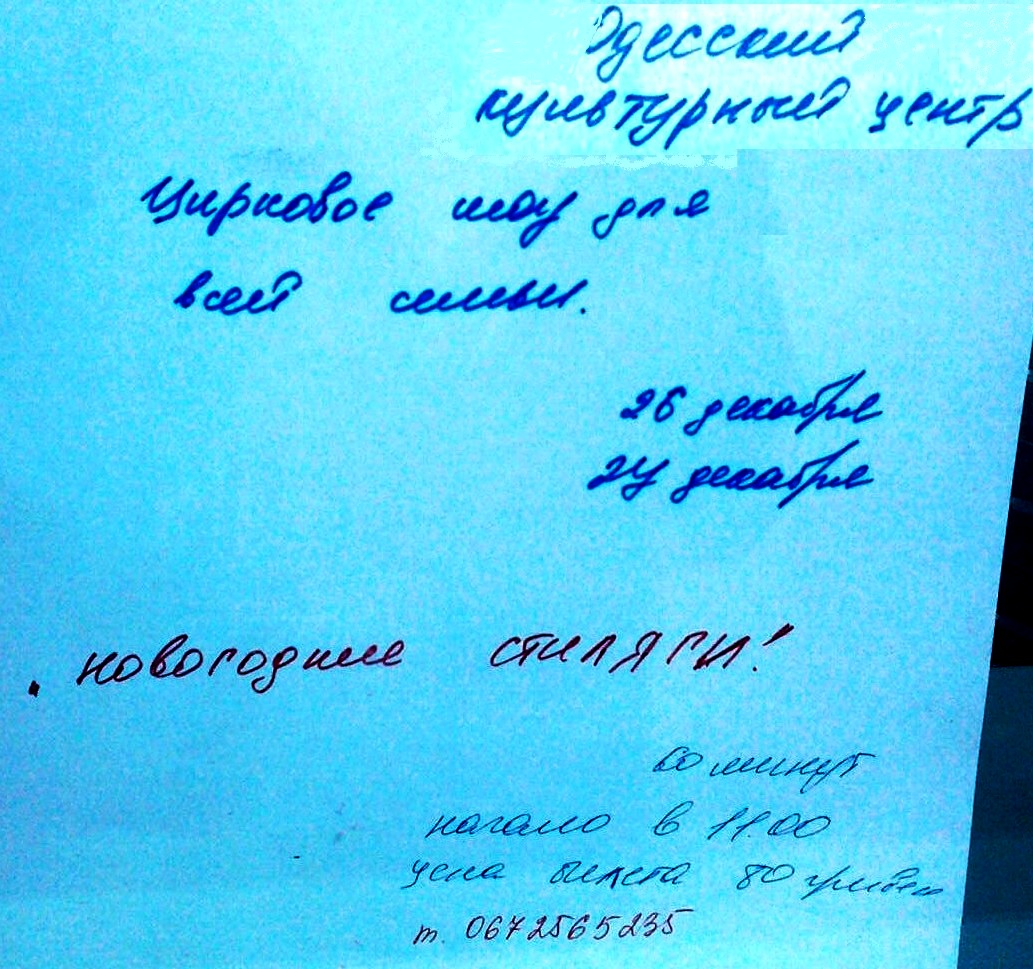 Одесский
культурный центр
Цирковое шоу для
всей семьи.
26 декабря
27 декабря
. новогодние стиляги!
60 минут
начало в 11.00
цена билета 80 гривен
т. 0672565235